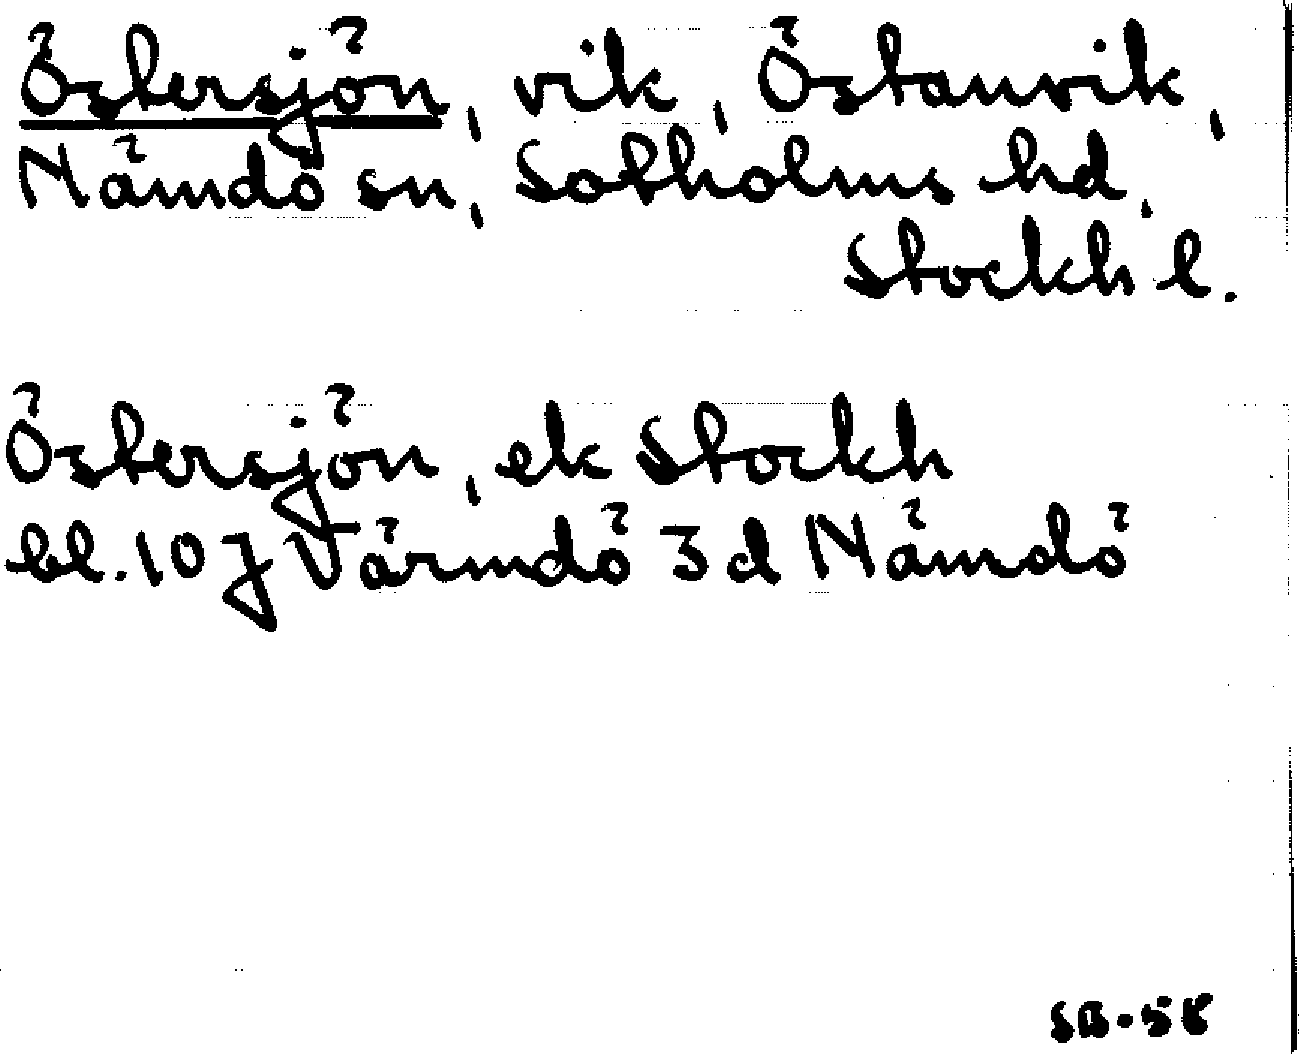 Östersjön, vik, Östanvik,
Nämdö sn, Sotholms hd,
Stockh l.
Östersjön, ek Stockh
bl. 10 J Värmdö 3 d Nämdö
SB-58